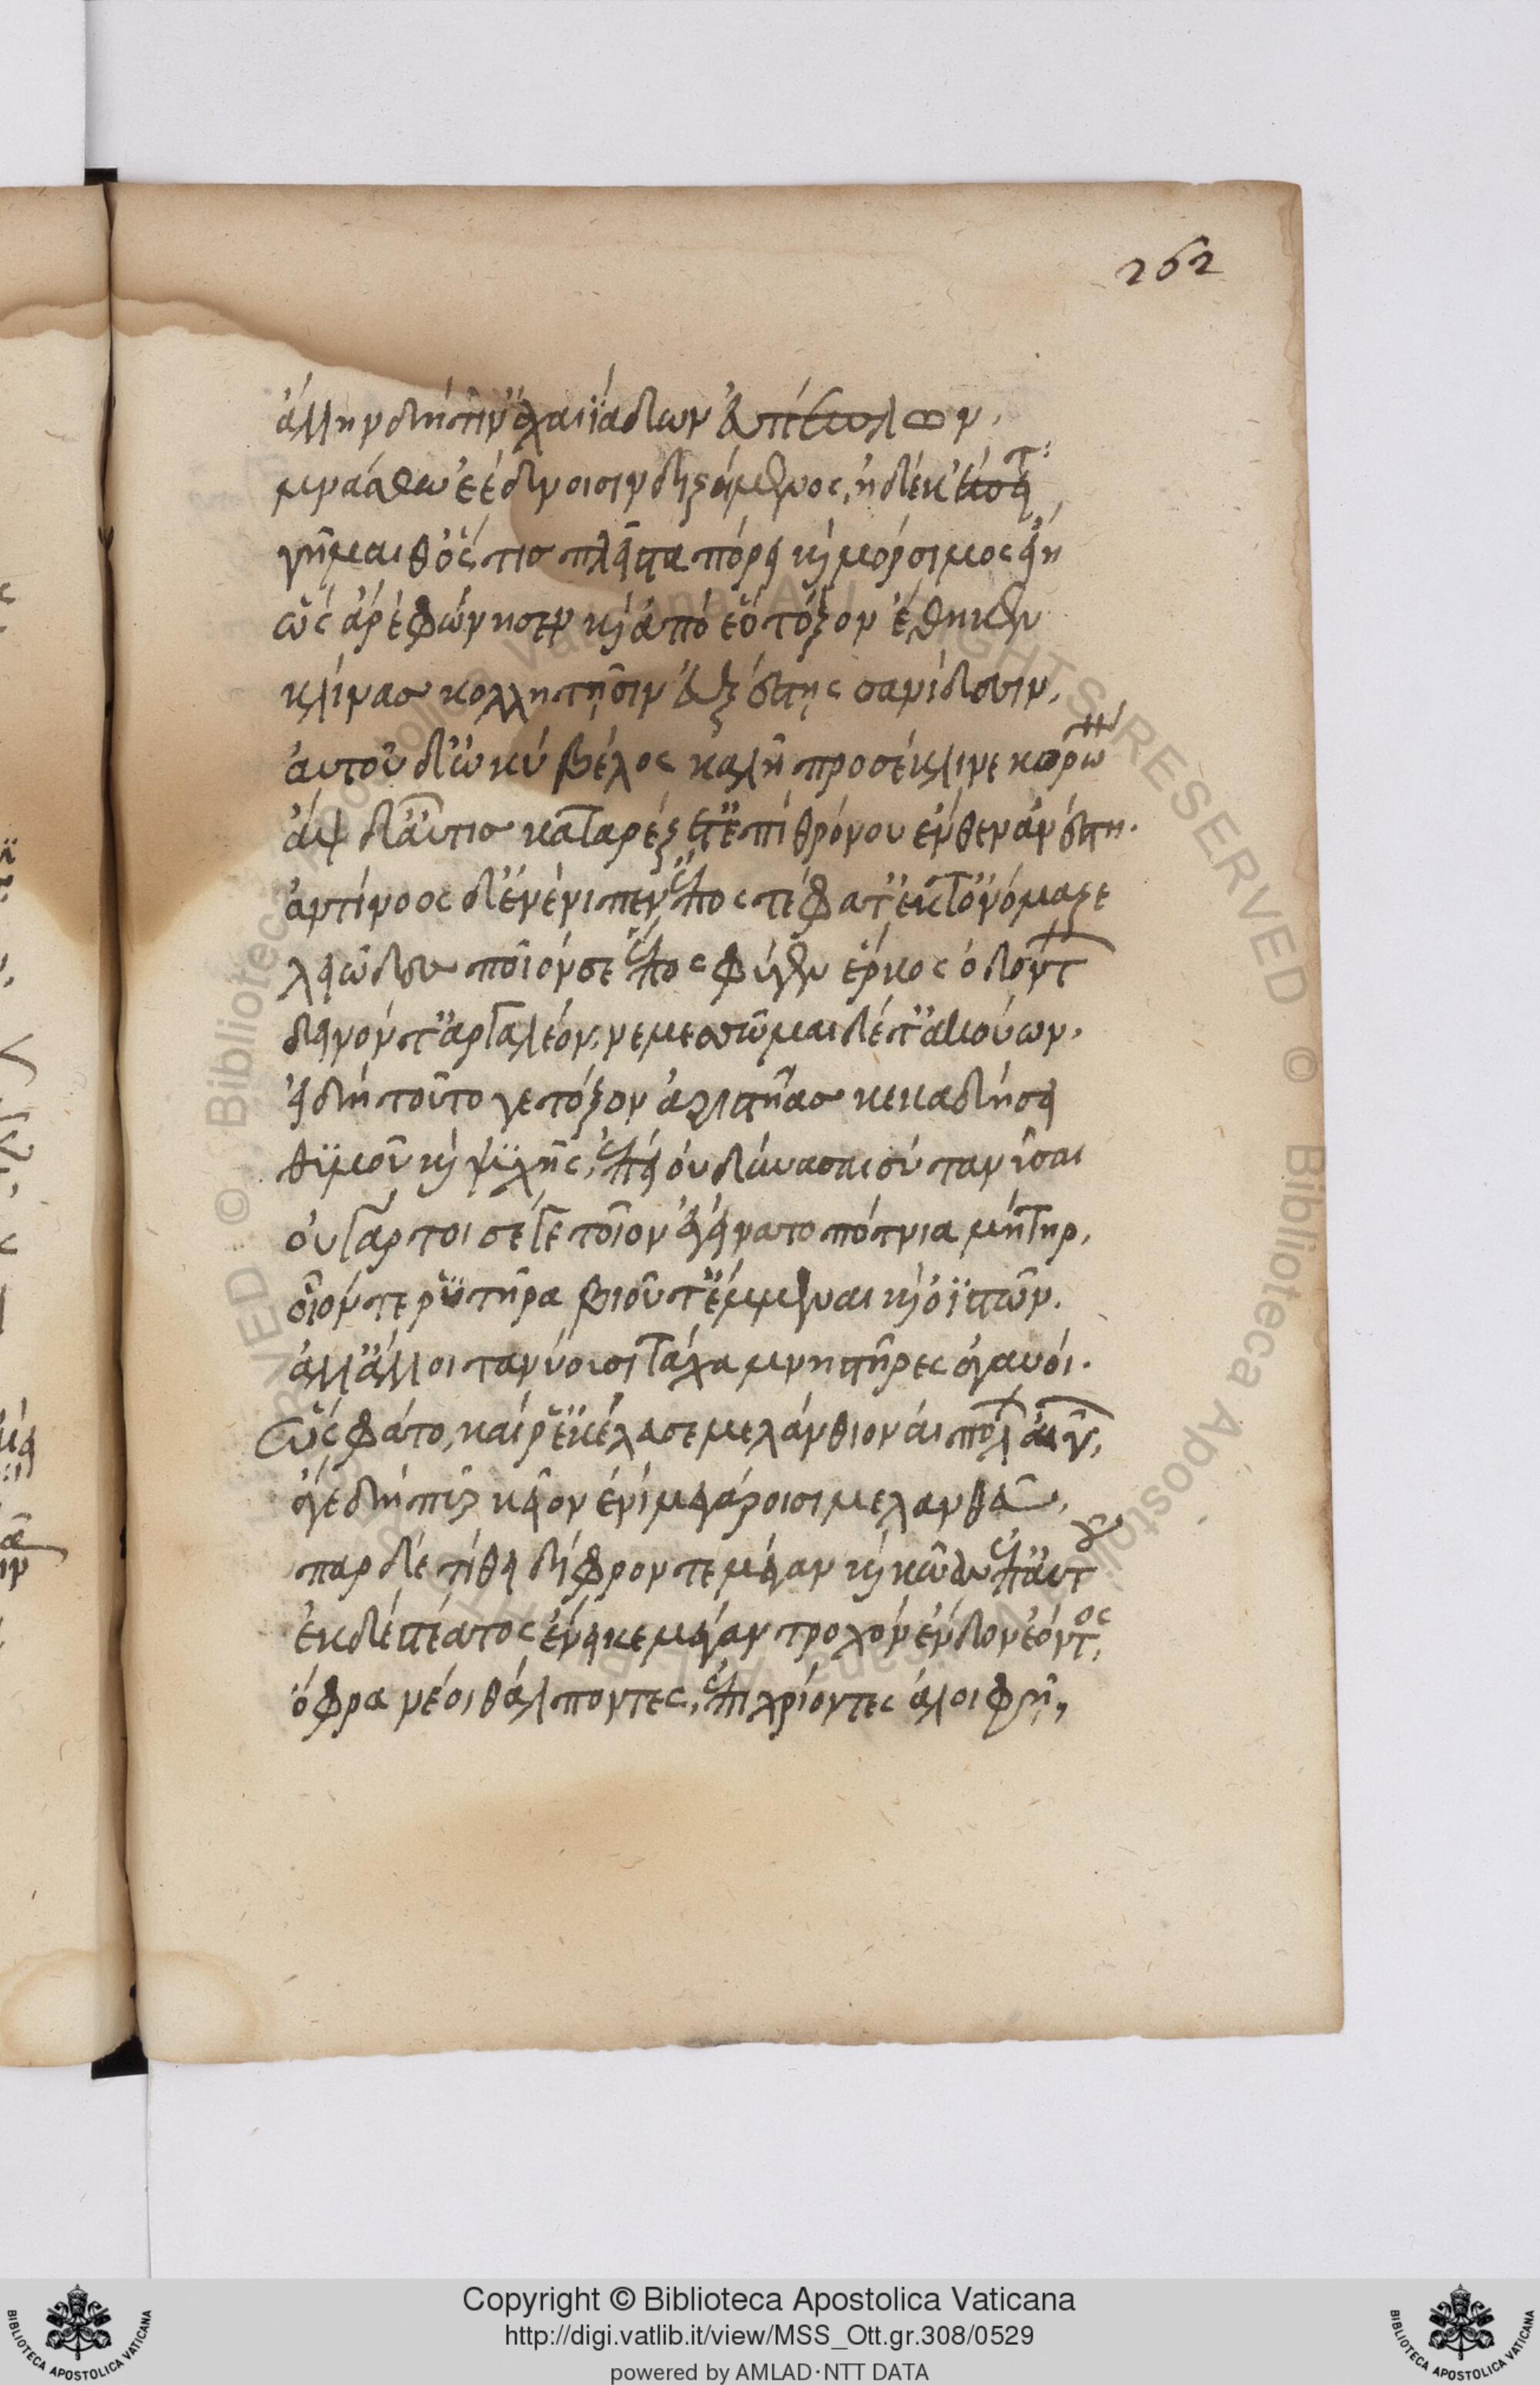 262
ἄλλην δή τιν' ἀχαιϊάδων εὐπέπλων.
μνάσθω ἐέδνοισιν διζήμενος, ἡ δέ κ' ἔπειτα
γήμαιθ' ὅς τις πλεῖστα πόροι καὶ μόρσιμος ἔλθοι
ὣς ἄρ' ἐφώνησεν καὶ ἀπὸ ἕο τόξον ἔθηκεν
κλίνας κολλητῇσιν ἐϋξέστῃς σανίδεσσιν.
αὐτοῦ δ' ὠκὺ βέλος καλῇ προσέκλινε κορώνῃ
ἂψ δ' αὖτις κατ' ἄρ' ἕζετ' ἐπὶ θρόνου ἔνθεν ἀνέστη.
ἀντίνοος δ' ἐνένιπεν ἔπος τ' ἔφατ' ἔκ τ' ὀνόμαζε
λειῶδες ποῖόν σε ἔπος φύγεν ἕρκος ὀδόντων
δεινόν τ' ἀργαλέον, νεμεσσῶμαι δέ τ' ἀκούων.
εἰ δὴ τοῦτό γε τόξον ἀριστῆας κεκαδήσει
θυμοῦ καὶ ψυχῆς, ἐπεὶ οὐ δύνασαι σὺ τανύσσαι
οὐ γάρ τοι σέ γε τοῖον ἐγείνατο πότνια μήτηρ,
οἷόν τε ῥυτῆρα βιοῦ τ' ἔμμεναι καὶ ὀϊστῶν.
ἀλλ' ἄλλοι τανύουσι τάχα μνηστῆρες ἀγαυοί.
ὣς φάτο, καί ῥ' ἐκέλευσε μελάνθιον αἰπόλον αἰγῶν,
ἄγρει δὴ πῦρ κεῖον ἐνὶ μεγάροισι μελανθεῦ,
παρ δὲ τίθει δίφρον τε μέγαν καὶ κῶας ἐπ' αὐτοῦ
ἐκ δὲ στέατος ἔνεικε μέγαν τροχὸν ἔνδον ἐόντος,
ὄφρα νέοι θάλποντες, ἐπιχρίοντες ἀλοιφῇ,
Copyright © Biblioteca Apostolica Vaticana
http://digi.vatlib.it/view/MSS_Ott.gr.308/0529
powered by AMLAD·NTT DATA